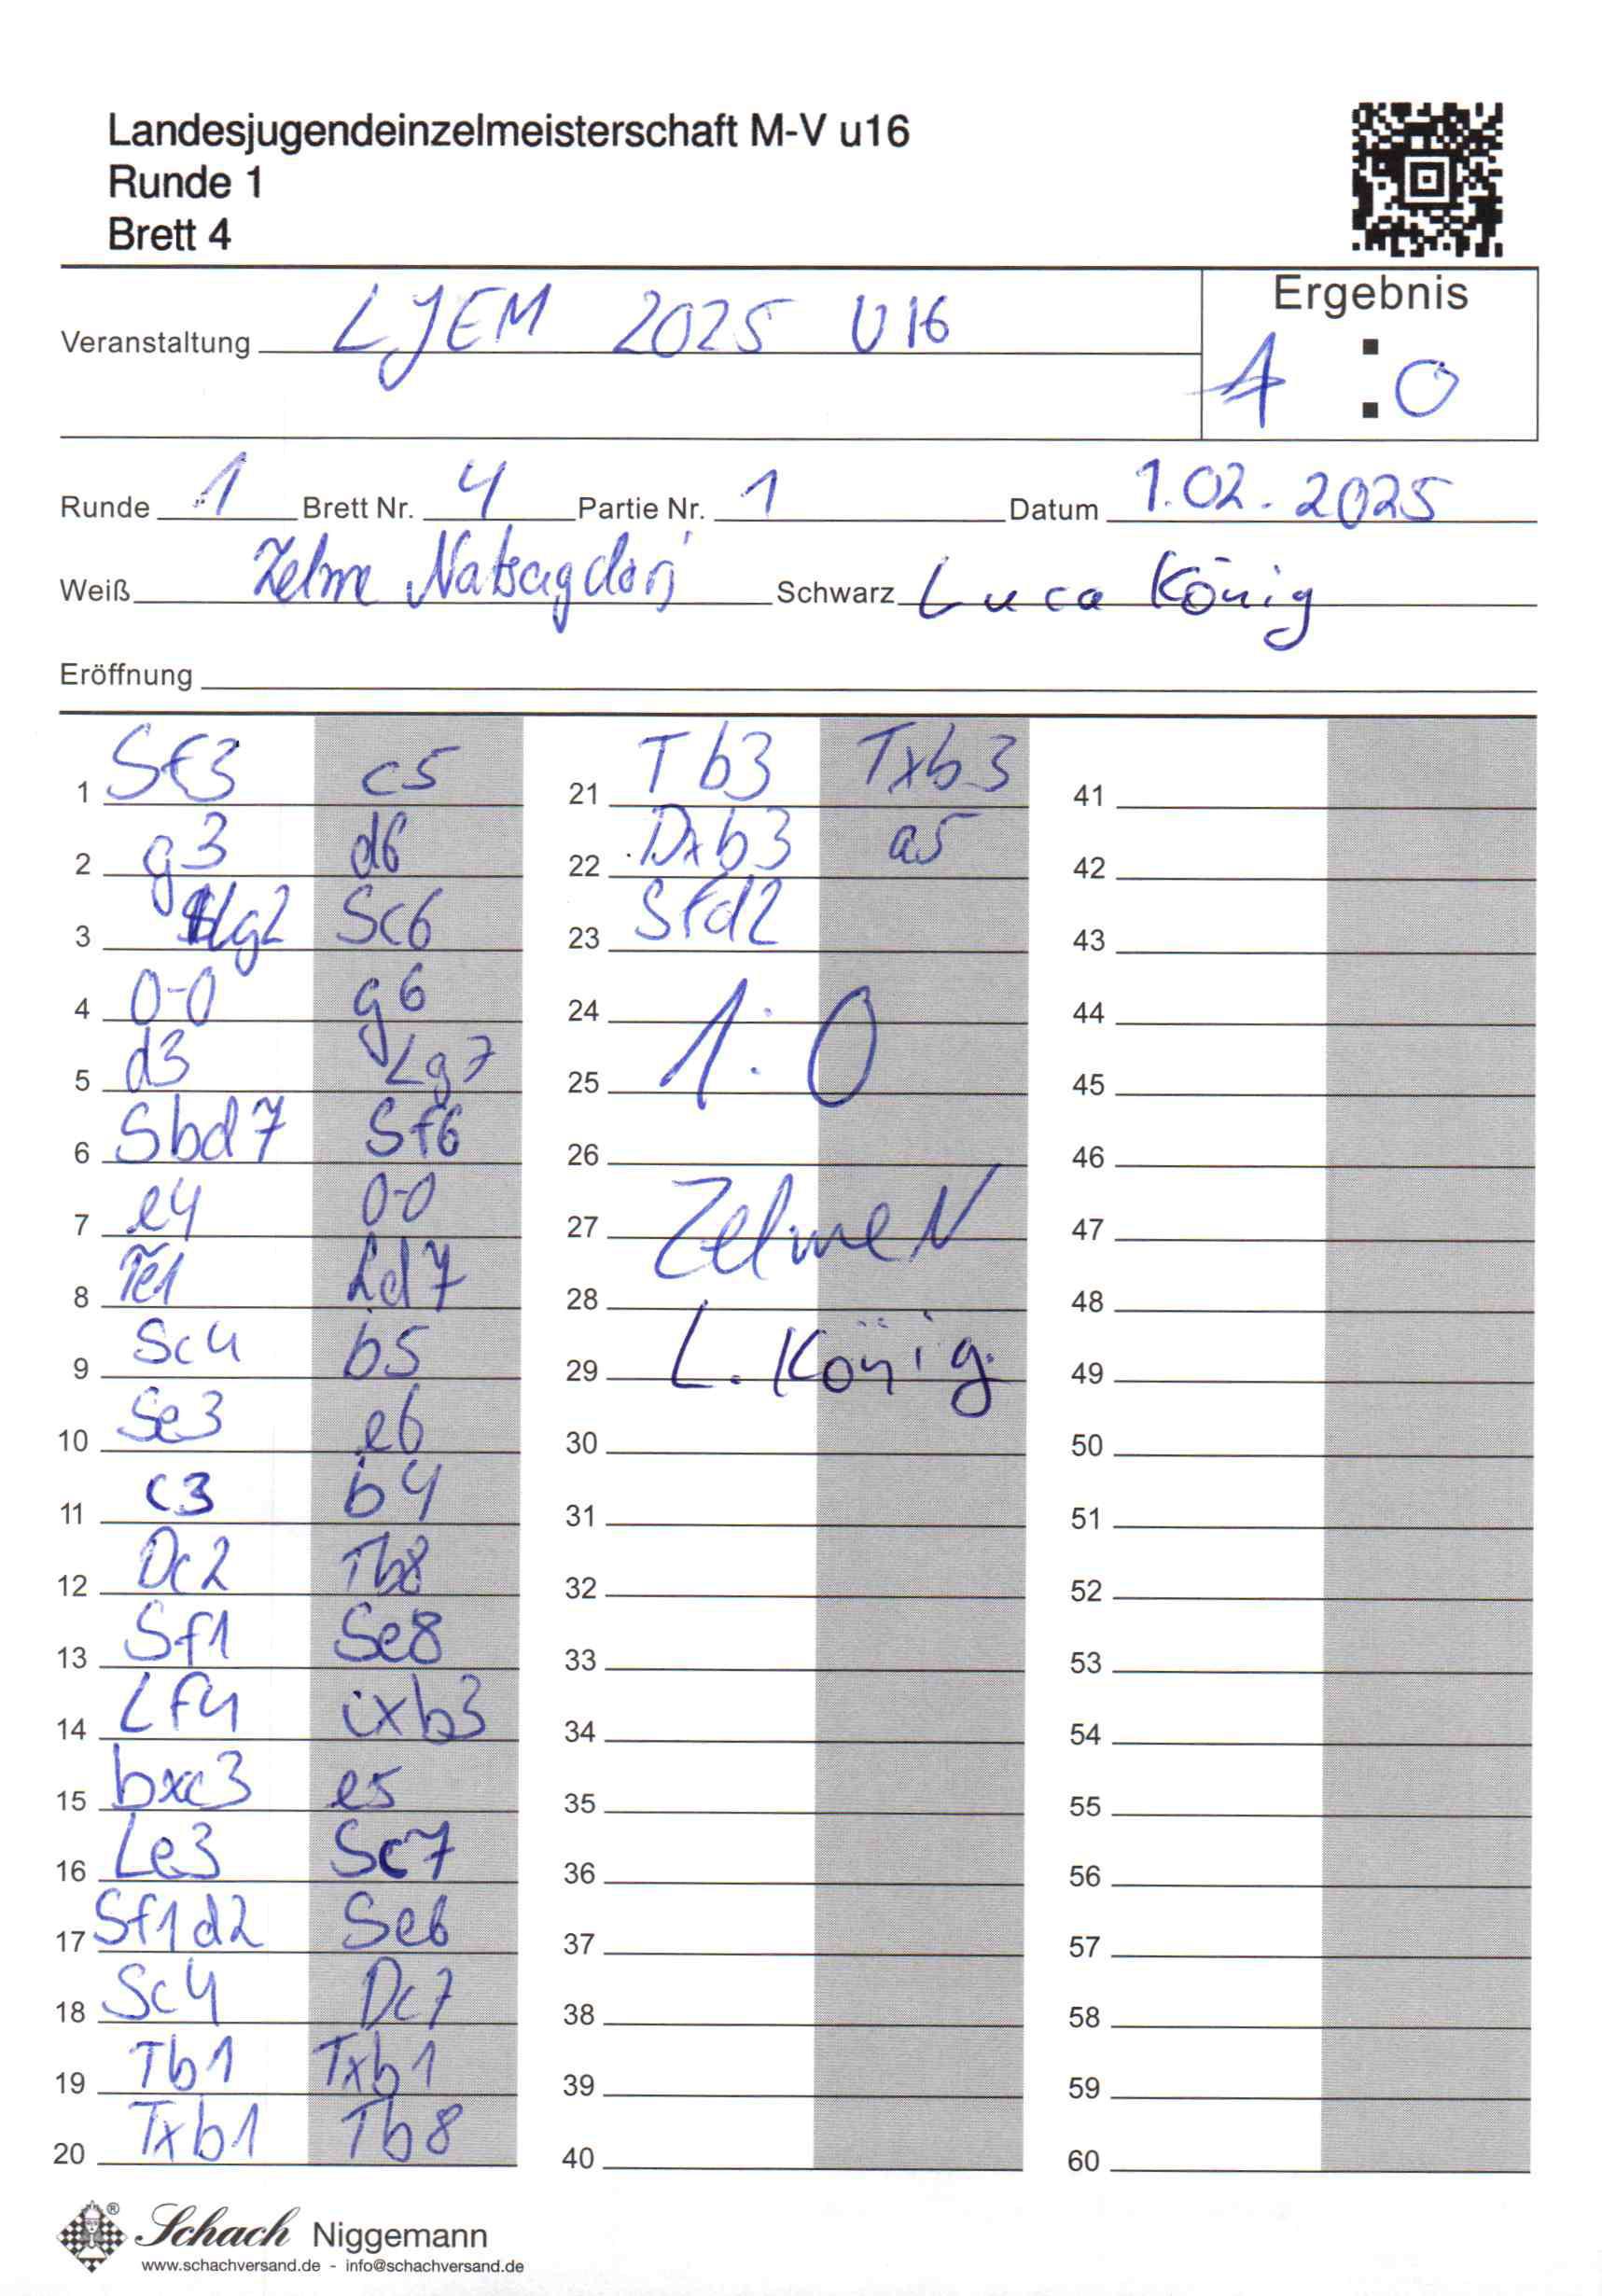 Landesjugendeinzelmeisterschaft M-V u16
Runde 1
Brett 4
Ergebnis
Veranstaltung LJEM 2025 U16
1 : 0
Runde 1 Brett Nr. 4 Partie Nr. 1 Datum 1.02.2025
Weiß Zelme Natsagdorj Schwarz Luca König
Eröffnung
1 Sf3 c5
2 g3 d6
3 Lg2 Sc6
4 0-0 g6
5 d3 Lg7
6 Sbd7 Sf6
7 e4 0-0
8 Te1 Ld7
9 Sc4 b5
10 Se3 e6
11 c3 b4
12 Dc2 Tb8
13 Sf1 Se8
14 Lf4 cxb3
15 bxc3 e5
16 Le3 Sc7
17 Sf1d2 Se6
18 Sc4 Dc7
19 Tb1 Txb1
20 Txb1 Tb8
21 Tb3 Txb3
22 Dxb3 a5
23 Sfd2
24
25
1:0
26
27
Zelme N
28
29
L. König
30
31
32
33
34
35
36
37
38
39
40
41
42
43
44
45
46
47
48
49
50
51
52
53
54
55
56
57
58
59
60
Schach Niggemann
www.schachversand.de - info@schachversand.de